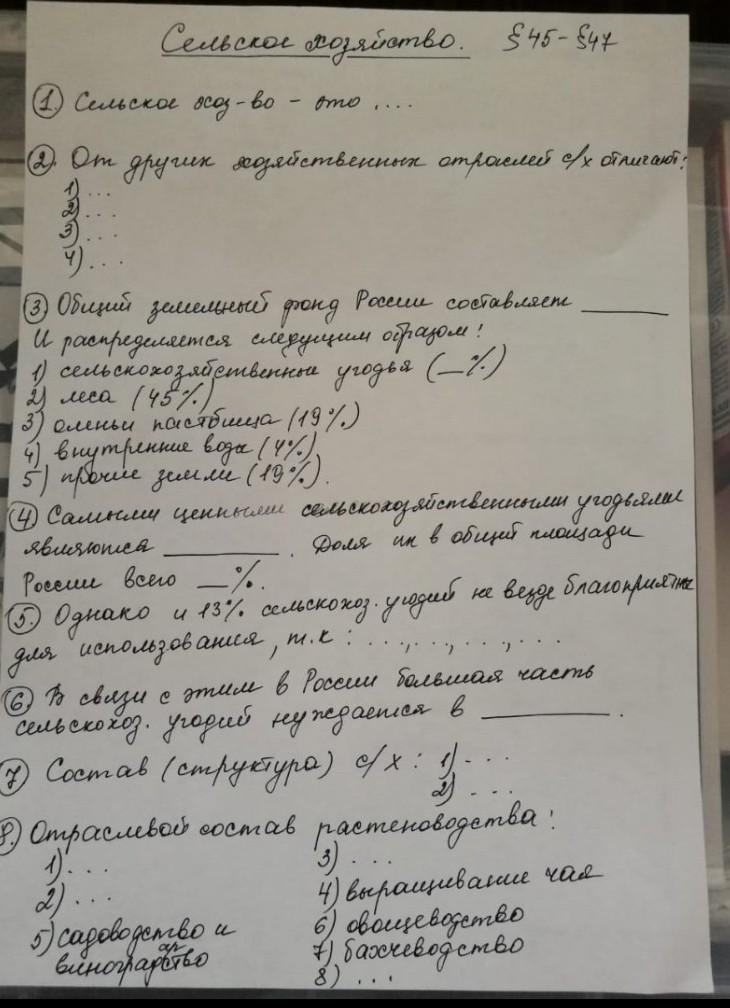 Сельское хозяйство. §45-§47
1. Сельское хоз-во - это ....
2. От других хозяйственных отраслей с/х отличают:
1) ...
2) ...
3) ...
4) ...
3. Общий земельный фонд России составляет ______
И распределяется следущим образом:
1) сельскохозяйственные угодья (__%)
2) леса (45%)
3) оленьи пастбища (19%)
4) внутренние воды (4%)
5) прочие земли (19%).
4. Самыми ценными сельскохозяйственными угодьями
являются ________. Доля их в общей площади
России всего __%.
5. Однако и 13% сельскохоз. угодий не везде благоприятны
для использования, т.к : ..., ..., ..., ...
6. В связи с этим в России большая часть
сельскохоз. угодий нуждается в ________.
7 Состав (структура) с/х : 1) ...
2) ...
8. Отраслевой состав растеноводства:
1) ... 3) ...
2) ... 4) выращивание чая
5) садоводство и 6) овощеводство
виноградарство 7) бахчеводство
8) ...